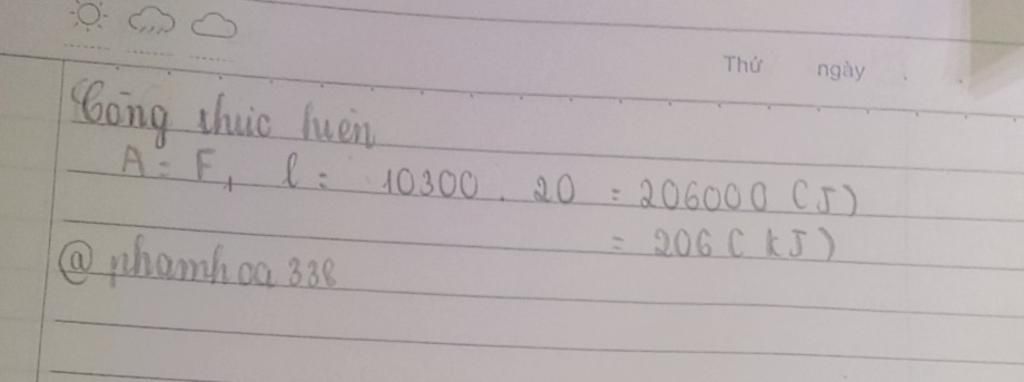 Thứ ngày
Công thức hiện
A = F. l = 10300 . 20 = 206000 (J)
= 206 (kJ)
@ phamhoa 338